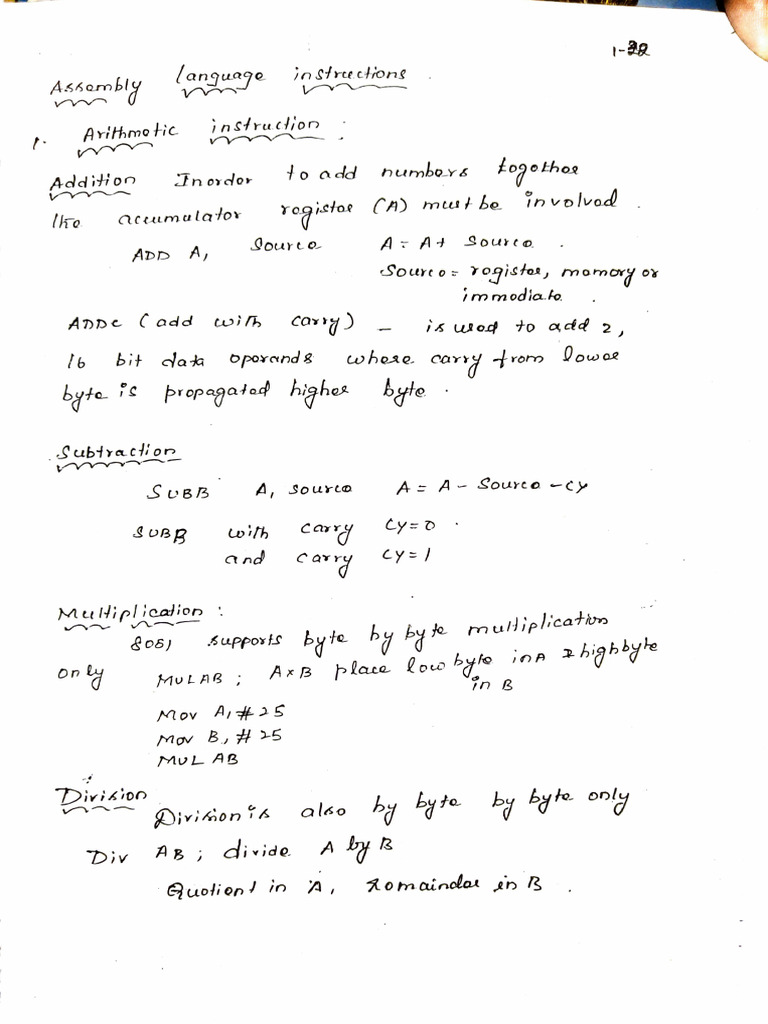 1-32
Assembly language instructions.
1. Arithmetic instruction:
Addition Inorder to add numbers together
the accumulator register (A) must be involved.
ADD A, Source A = A + Source.
Source = register, memory or
immediate.
ADDC (add with carry) – is used to add 2,
16 bit data operands where carry from lower
byte is propagated higher byte.
Subtraction
SUBB A, source A = A - Source - CY
SUBB with carry CY=0.
and carry CY=1
Multiplication:
8051 supports byte by byte multiplication
only MUL AB; A×B place low byte in A & high byte
in B
MOV A, #25
MOV B, #25
MUL AB
Division
Division is also by byte by byte only
Div AB; divide A by B
Quotient in A, remainder in B.